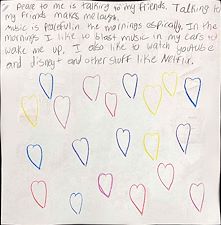 Peace to me is talking to my friends. Talking to
my friends makes me laugh.
Music is peacful in the mornings espically. In the
mornings I like to blast music in my ears to
wake me up. I also like to watch youtube
and disney+ and other stuff like Netflix.